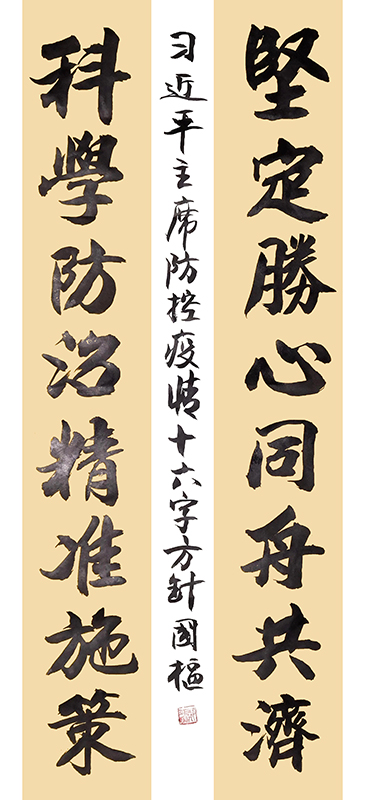 堅定勝心同舟共濟
科學防治精准施策
习近平主席防控疫情十六字方針國樞